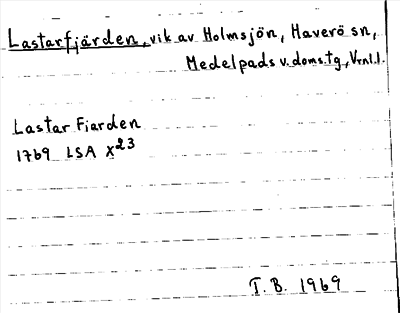 Lastarfjärden, vik av Holmsjön, Haverö sn,
Medelpads v. doms. tg, Vrnl. l.
Lastar Fiarden
1769 LSA X23
T. B. 1969